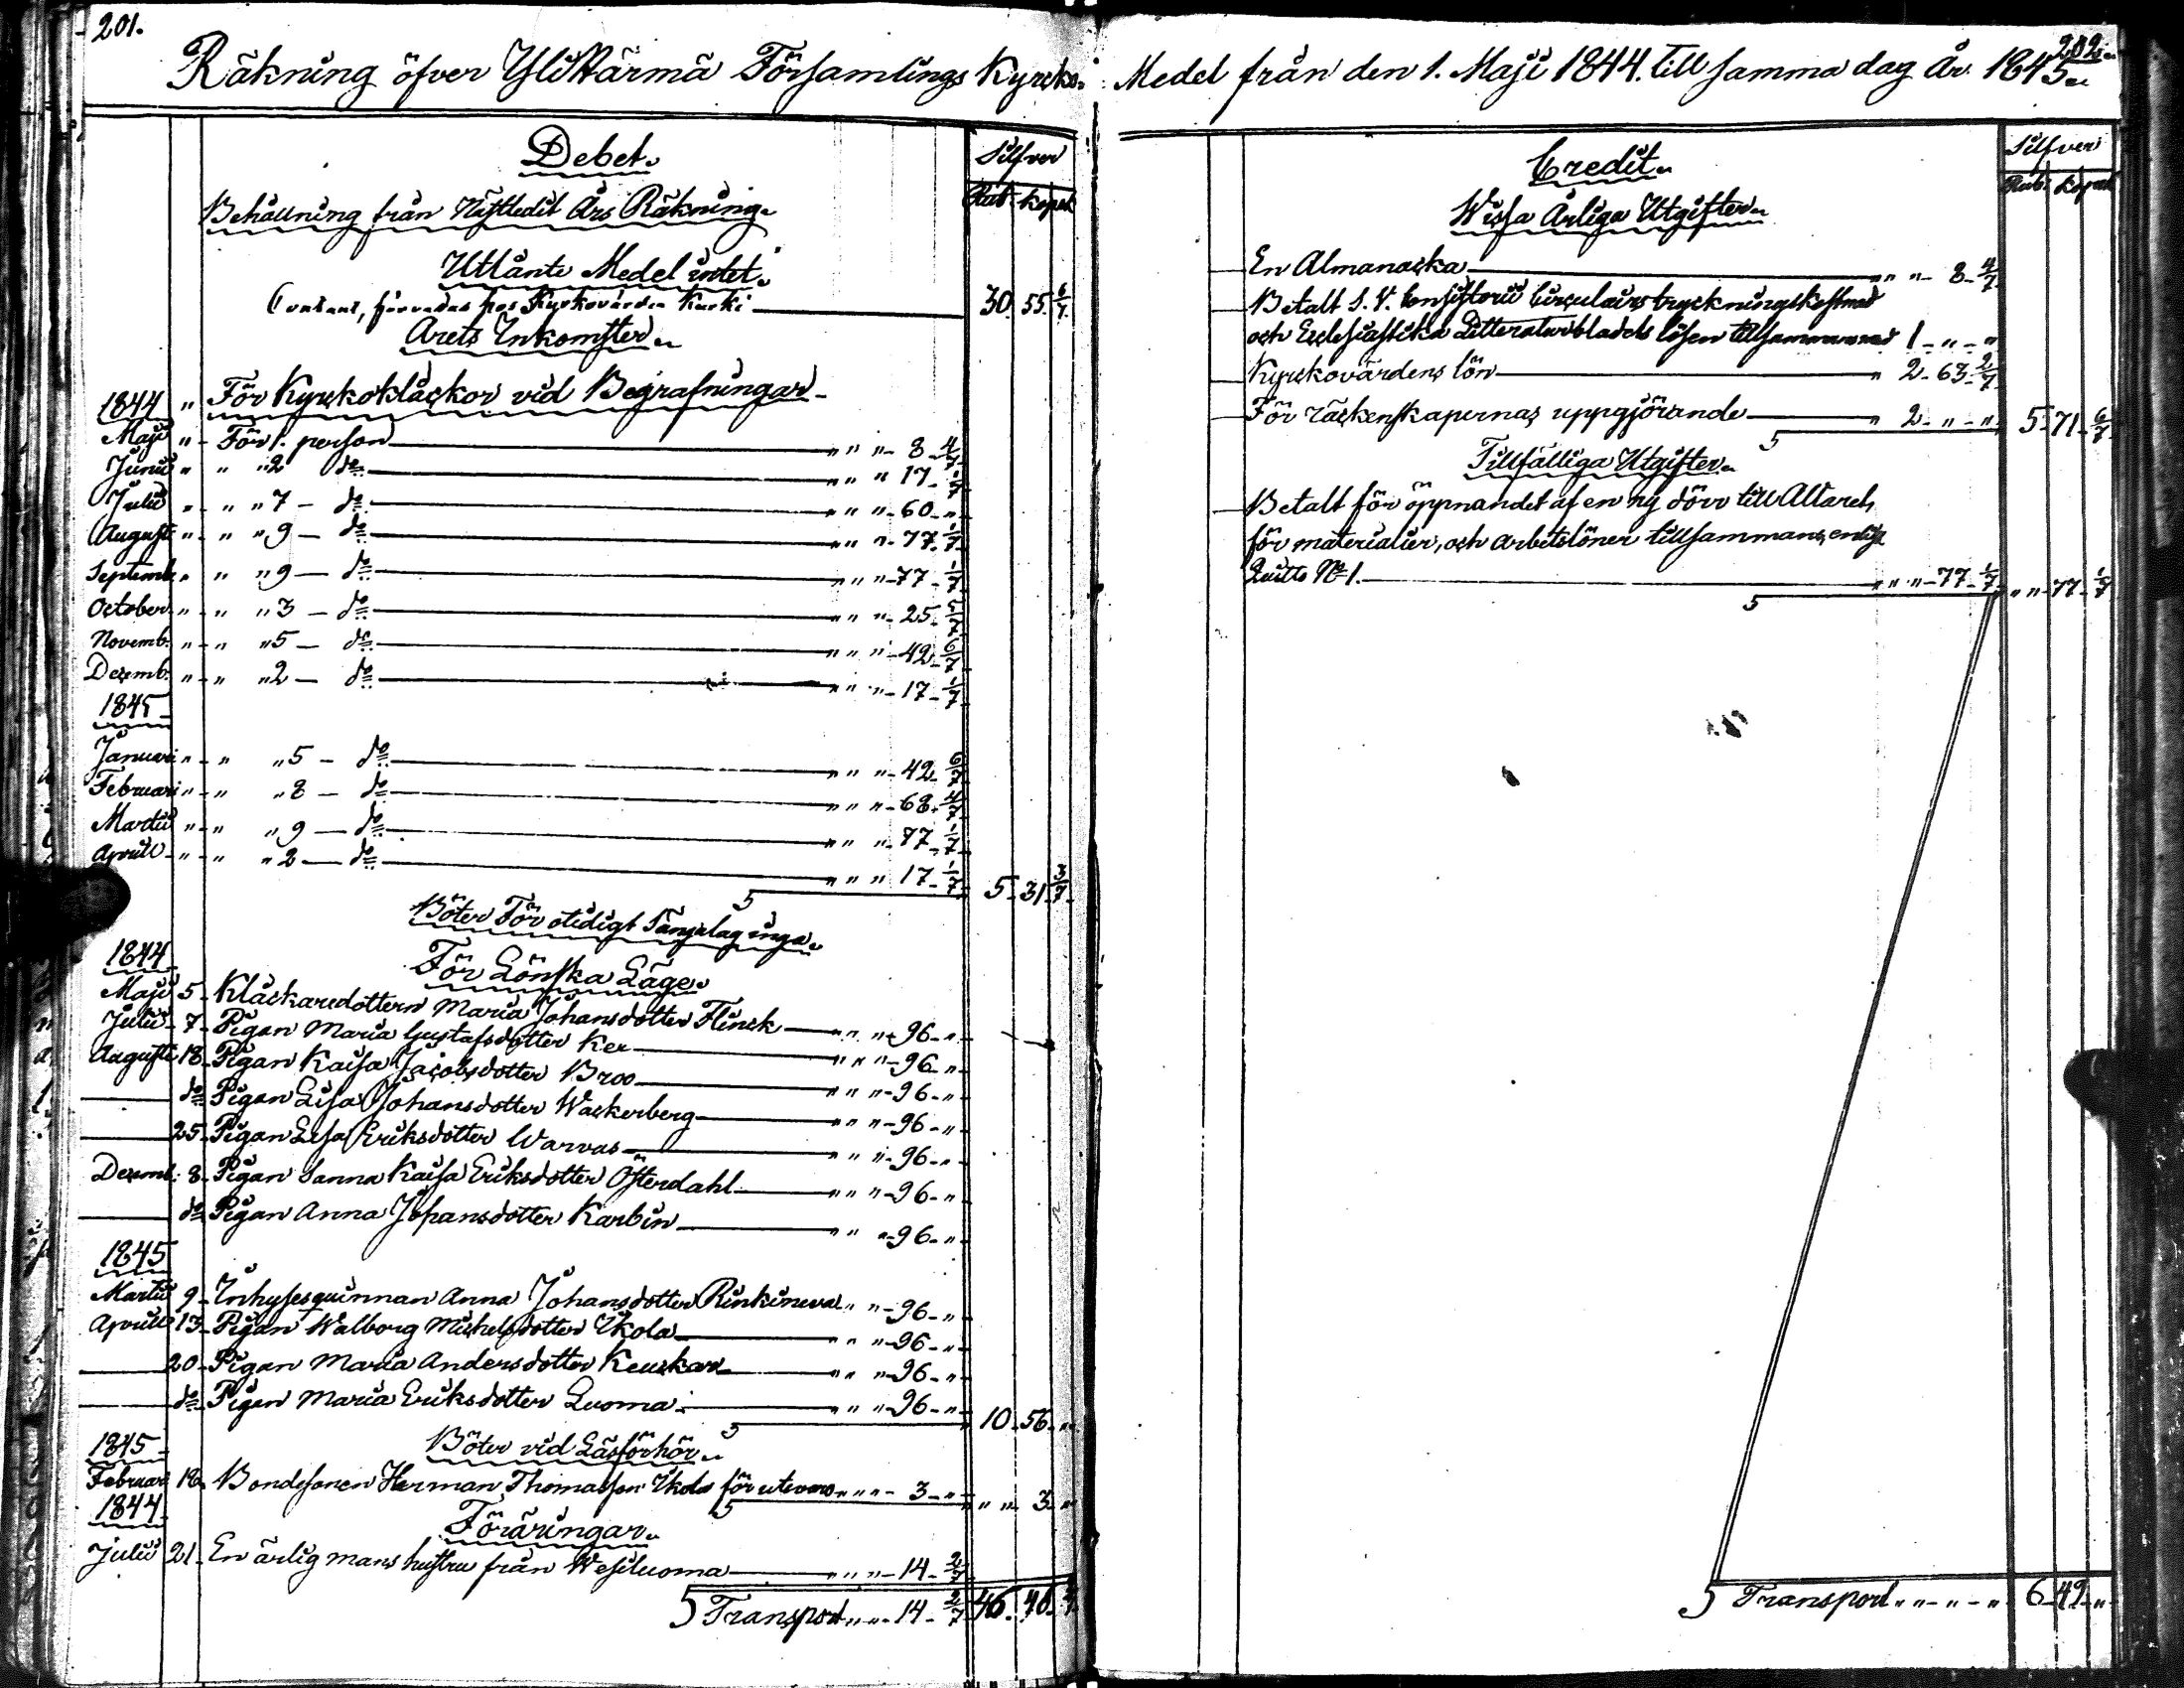 201.
Räkning öfver Ylihärmä Församlings Kyrcko-
Debet.
Silfver
Rub. Kopek
Behållning från Nästledit Års Räkning.
Utlånte Medel intet.
Contant, förvaras hos Kyrkovärden Karki 30. 55 6/7
Årets Inkomster.
1844 " För Kyrckoklåckor vid Begrafningar
Maji " - För 1. person " " - 8 - 4/7
Junii " " " 2 do " " " 17 - 1/7
Julii " - " " 7 - do " " " - 60 - "
Augusti " - " " 9 - do " " " - 77 - 1/7
Septemb. " " " 9 - do " " " - 77 - 1/7
October " - " " 3 - do " " " - 25. 5/7
Novemb. " - " " 5 - do " " " - 42 - 6/7
Decemb. " - " " 2 - do " " " - 17 - 1/7
1845
Januari " - " " 5 - do " " " - 42 - 6/7
Februari " - " " 8 - do " " " - 68 - 4/7
Martii " - " " 9 - do " " " 77 - 1/7
Aprill " - " " 2 - do " " " 17 - 1/7
S 5 - 31 3/7
Böter För otidigt Sängelag inga.
För Lönska Läge.
1844
Maji 5 - Klåckaredottern Maria Johansdotter Flinck " " - 96 - "
Julii 7 - Pigan Maria Gustafsdotter Ker " " " - 96 - "
Augusti 18 - Pigan Kaisa Jacobsdotter Broo " " " - 96 - "
do Pigan Lisa Johansdotter Wackerberg " " " - 96 - "
25 - Pigan Lisa Eriksdotter Warvas " " " - 96 - "
Decemb. 8 - Pigan Sanna Kaisa Eriksdotter Österdahl " " " - 96 - "
do Pigan Anna Johansdotter Karbin " " " - 96 - "
1845
Martii 9 - Inhysesquinnan Anna Johansdotter Rinkineva " " - 96 - "
Aprill 13 - Pigan Walborg Michelsdotter Ekola " " " - 96 - "
20 - Pigan Maria Andersdotter " " " - 96 - "
do Pigan Maria Eriksdotter Luoma " " " - 96 - "
S 10 - 56 - "
1845 Böter vid Läsförhör.
Februari 18 Bondesonen Herman Thomasson Ekola för utevaro " " " - 3 - "
S " " - 3 - "
1844 Föräringar.
Julii 21 - En ärlig mans hustru från Wesiluoma " " " - 14 - 2/7
S Transport " " - 14 - 2/7 46. 46. 2/7
202.
Medel från den 1. Maji 1844. till samma dag År 1845.
Credit.
Silfver
Rub. Kopek
Wissa Årliga Utgifter.
En Almanacka " " - 8 - 4/7
Betalt S. V. Consistorii Circulairs tryckningskostnad
och Ecclesiastika Litteraturbladets lösen tillsammans med 1 - " - "
Kyrckovärdens lön " 2 - 63 - 2/7
För räckenskapernas uppgjörande " 2 - " - "
S 5 - 71 - 6/7
Tillfälliga Utgifter.
Betalt för öppnandet af en ny dörr till Altaret,
för materialier, och arbetslöner tillsammans, enligt
Quitto No 1. " " " - 77 - 1/7
S " " - 77 - 1/7
S Transport " " - " - " 6 - 49 - "